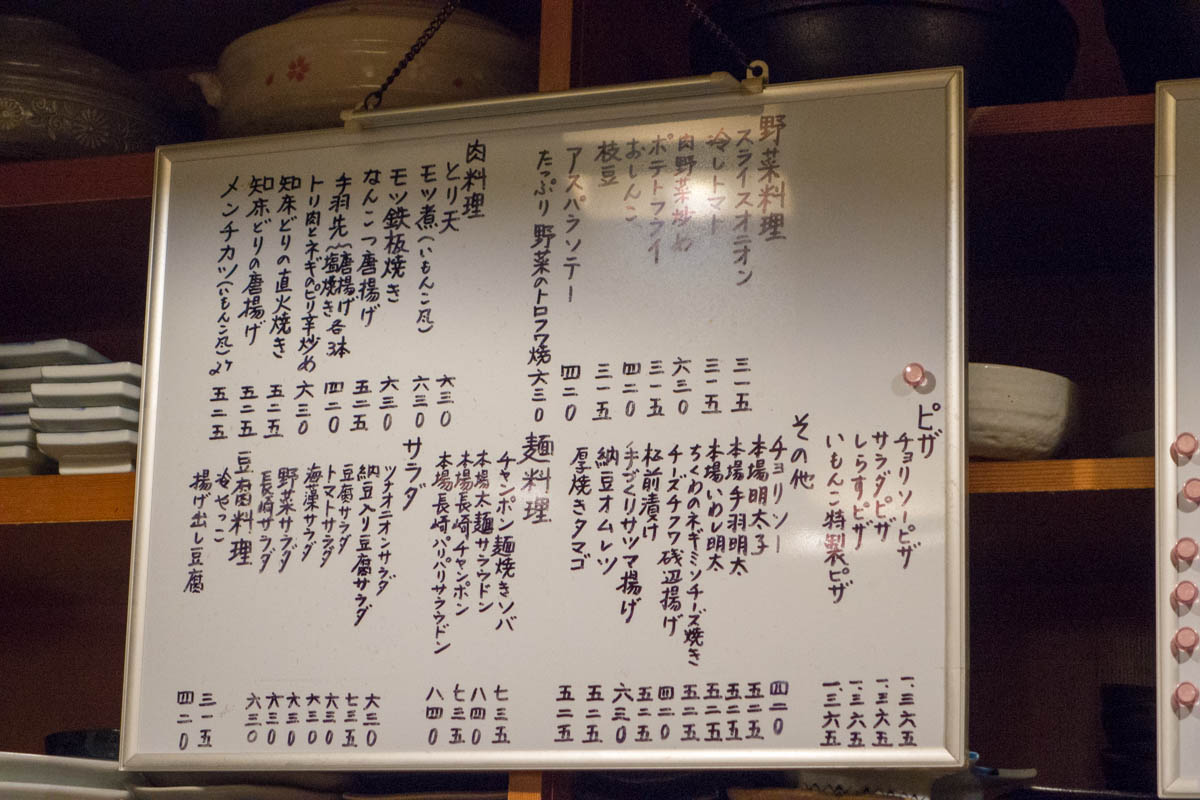 野菜料理
スライスオニオン 三一五
冷しトマト 三一五
肉野菜炒め 六三〇
ポテトフライ 三一五
おしんこ 四二〇
枝豆 三一五
アスパラソテー 四二〇
たっぷり野菜のトロフワ焼 六三〇
肉料理
とり天 六三〇
モツ煮(いもんこ風) 六三〇
モツ鉄板焼き 六三〇
なんこつ唐揚げ 五二五
手羽先〜唐揚げ 塩焼き 各3本 四二〇
トリ肉とネギのピリ辛炒め 六三〇
知床どりの直火焼き 五二五
知床どりの唐揚げ 五二五
メンチカツ(いもんこ風)2ケ 五二五
ピザ
チョリソーピザ 一、三六五
サラダピザ 一、三六五
しらすピザ 一、三六五
いもんこ特製ピザ 一、三六五
その他
チョリソー 四二〇
本場明太子 五二五
本場手羽明太 五二五
本場いわし明太 五二五
ちくわのネギミソチーズ焼き 五二五
チーズチクワ磯辺揚げ 四二〇
松前漬け 五二五
手づくりサツマ揚げ 六三〇
納豆オムレツ 五二五
厚焼きタマゴ 五二五
麺料理
チャンポン麺焼きソバ 七三五
本場太麺サラウドン 八四〇
本場長崎チャンポン 七三五
本場長崎パリパリサラウドン 八四〇
サラダ
ツナオニオンサラダ 六三〇
納豆入り豆腐サラダ 七三五
豆腐サラダ 六三〇
トマトサラダ 六三〇
海藻サラダ 六三〇
野菜サラダ 六三〇
長崎サラダ 六三〇
豆腐料理
冷やっこ 三一五
揚げ出し豆腐 四二〇